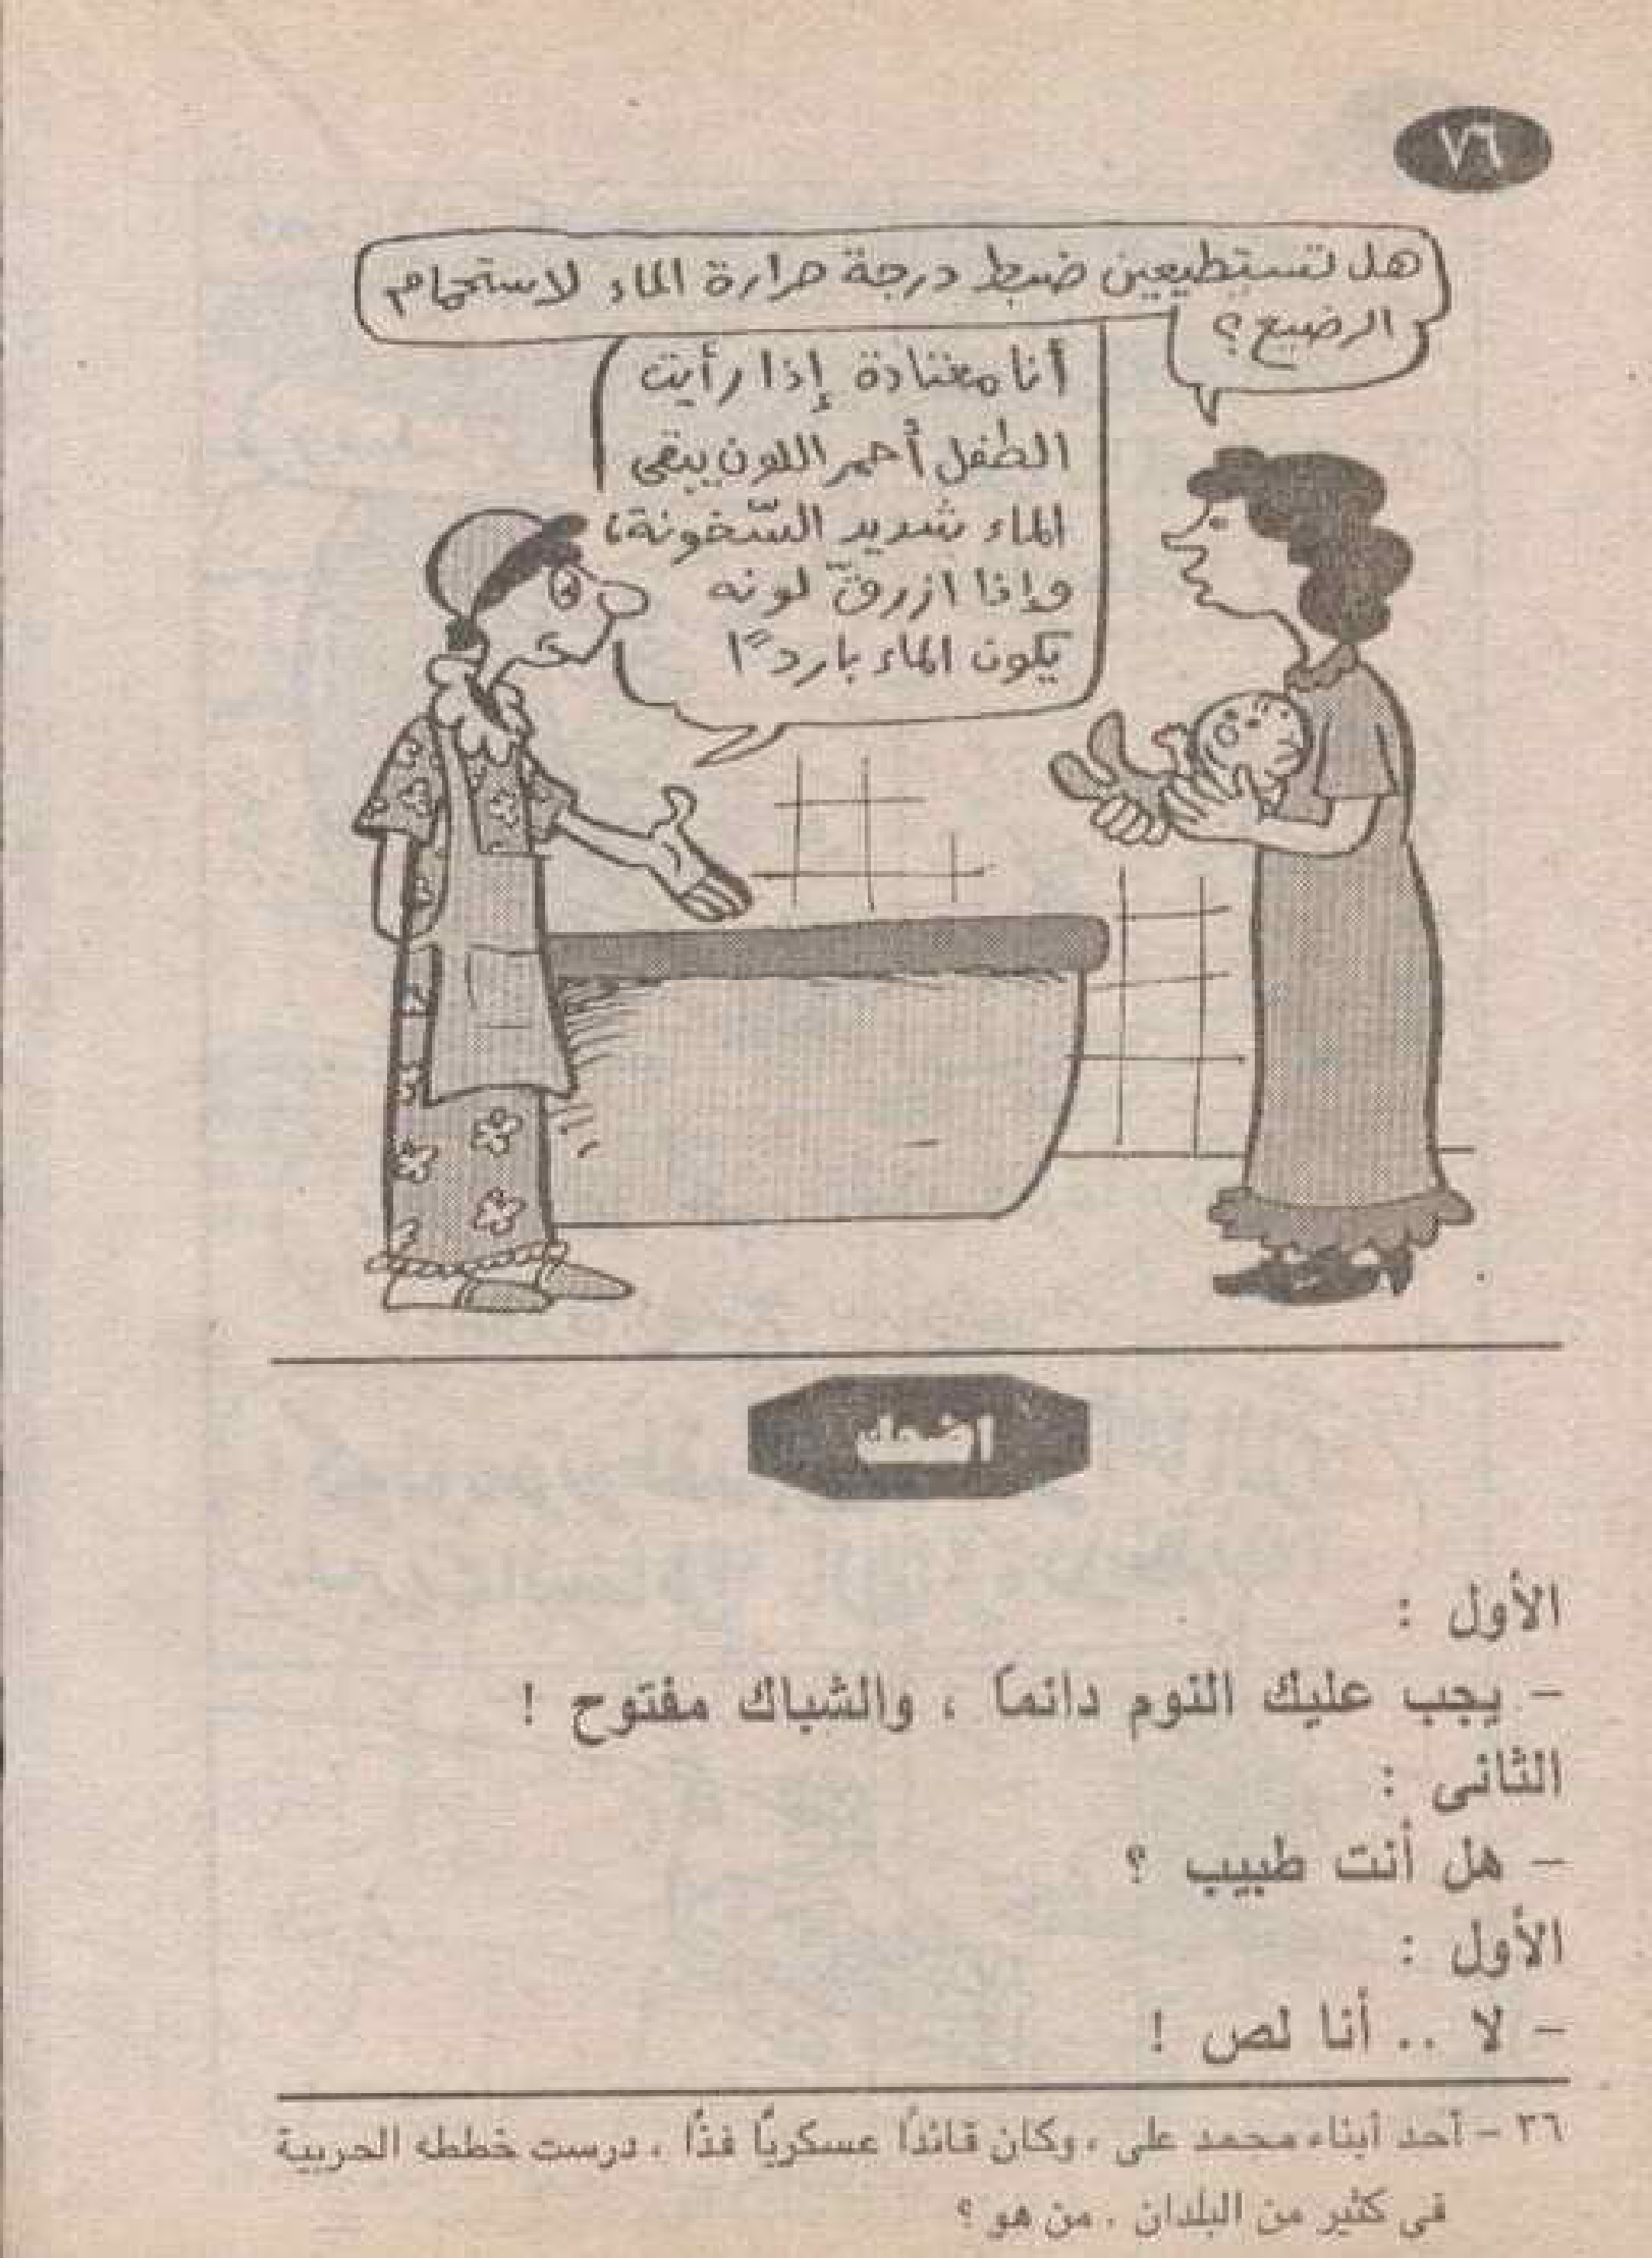 ٧٦
هل تستطيعين ضبط درجة حرارة الماء لاستحمام
الرضيع؟
أنا معتادة إذا رأيت
الطفل أحمر اللون يبقى
الماء شديد السّخونة،
وإذا ازرقّ لونه
يكون الماء باردًا
اضحك
الأول :
- يجب عليك النوم دائمًا ، والشباك مفتوح !
الثانى :
- هل أنت طبيب ؟
الأول :
- لا .. أنا لص !
٢٦ - أحد أبناء محمد على ، وكان قائدًا عسكريًا فذًا ، درست خططه الحربية
فى كثير من البلدان . من هو ؟